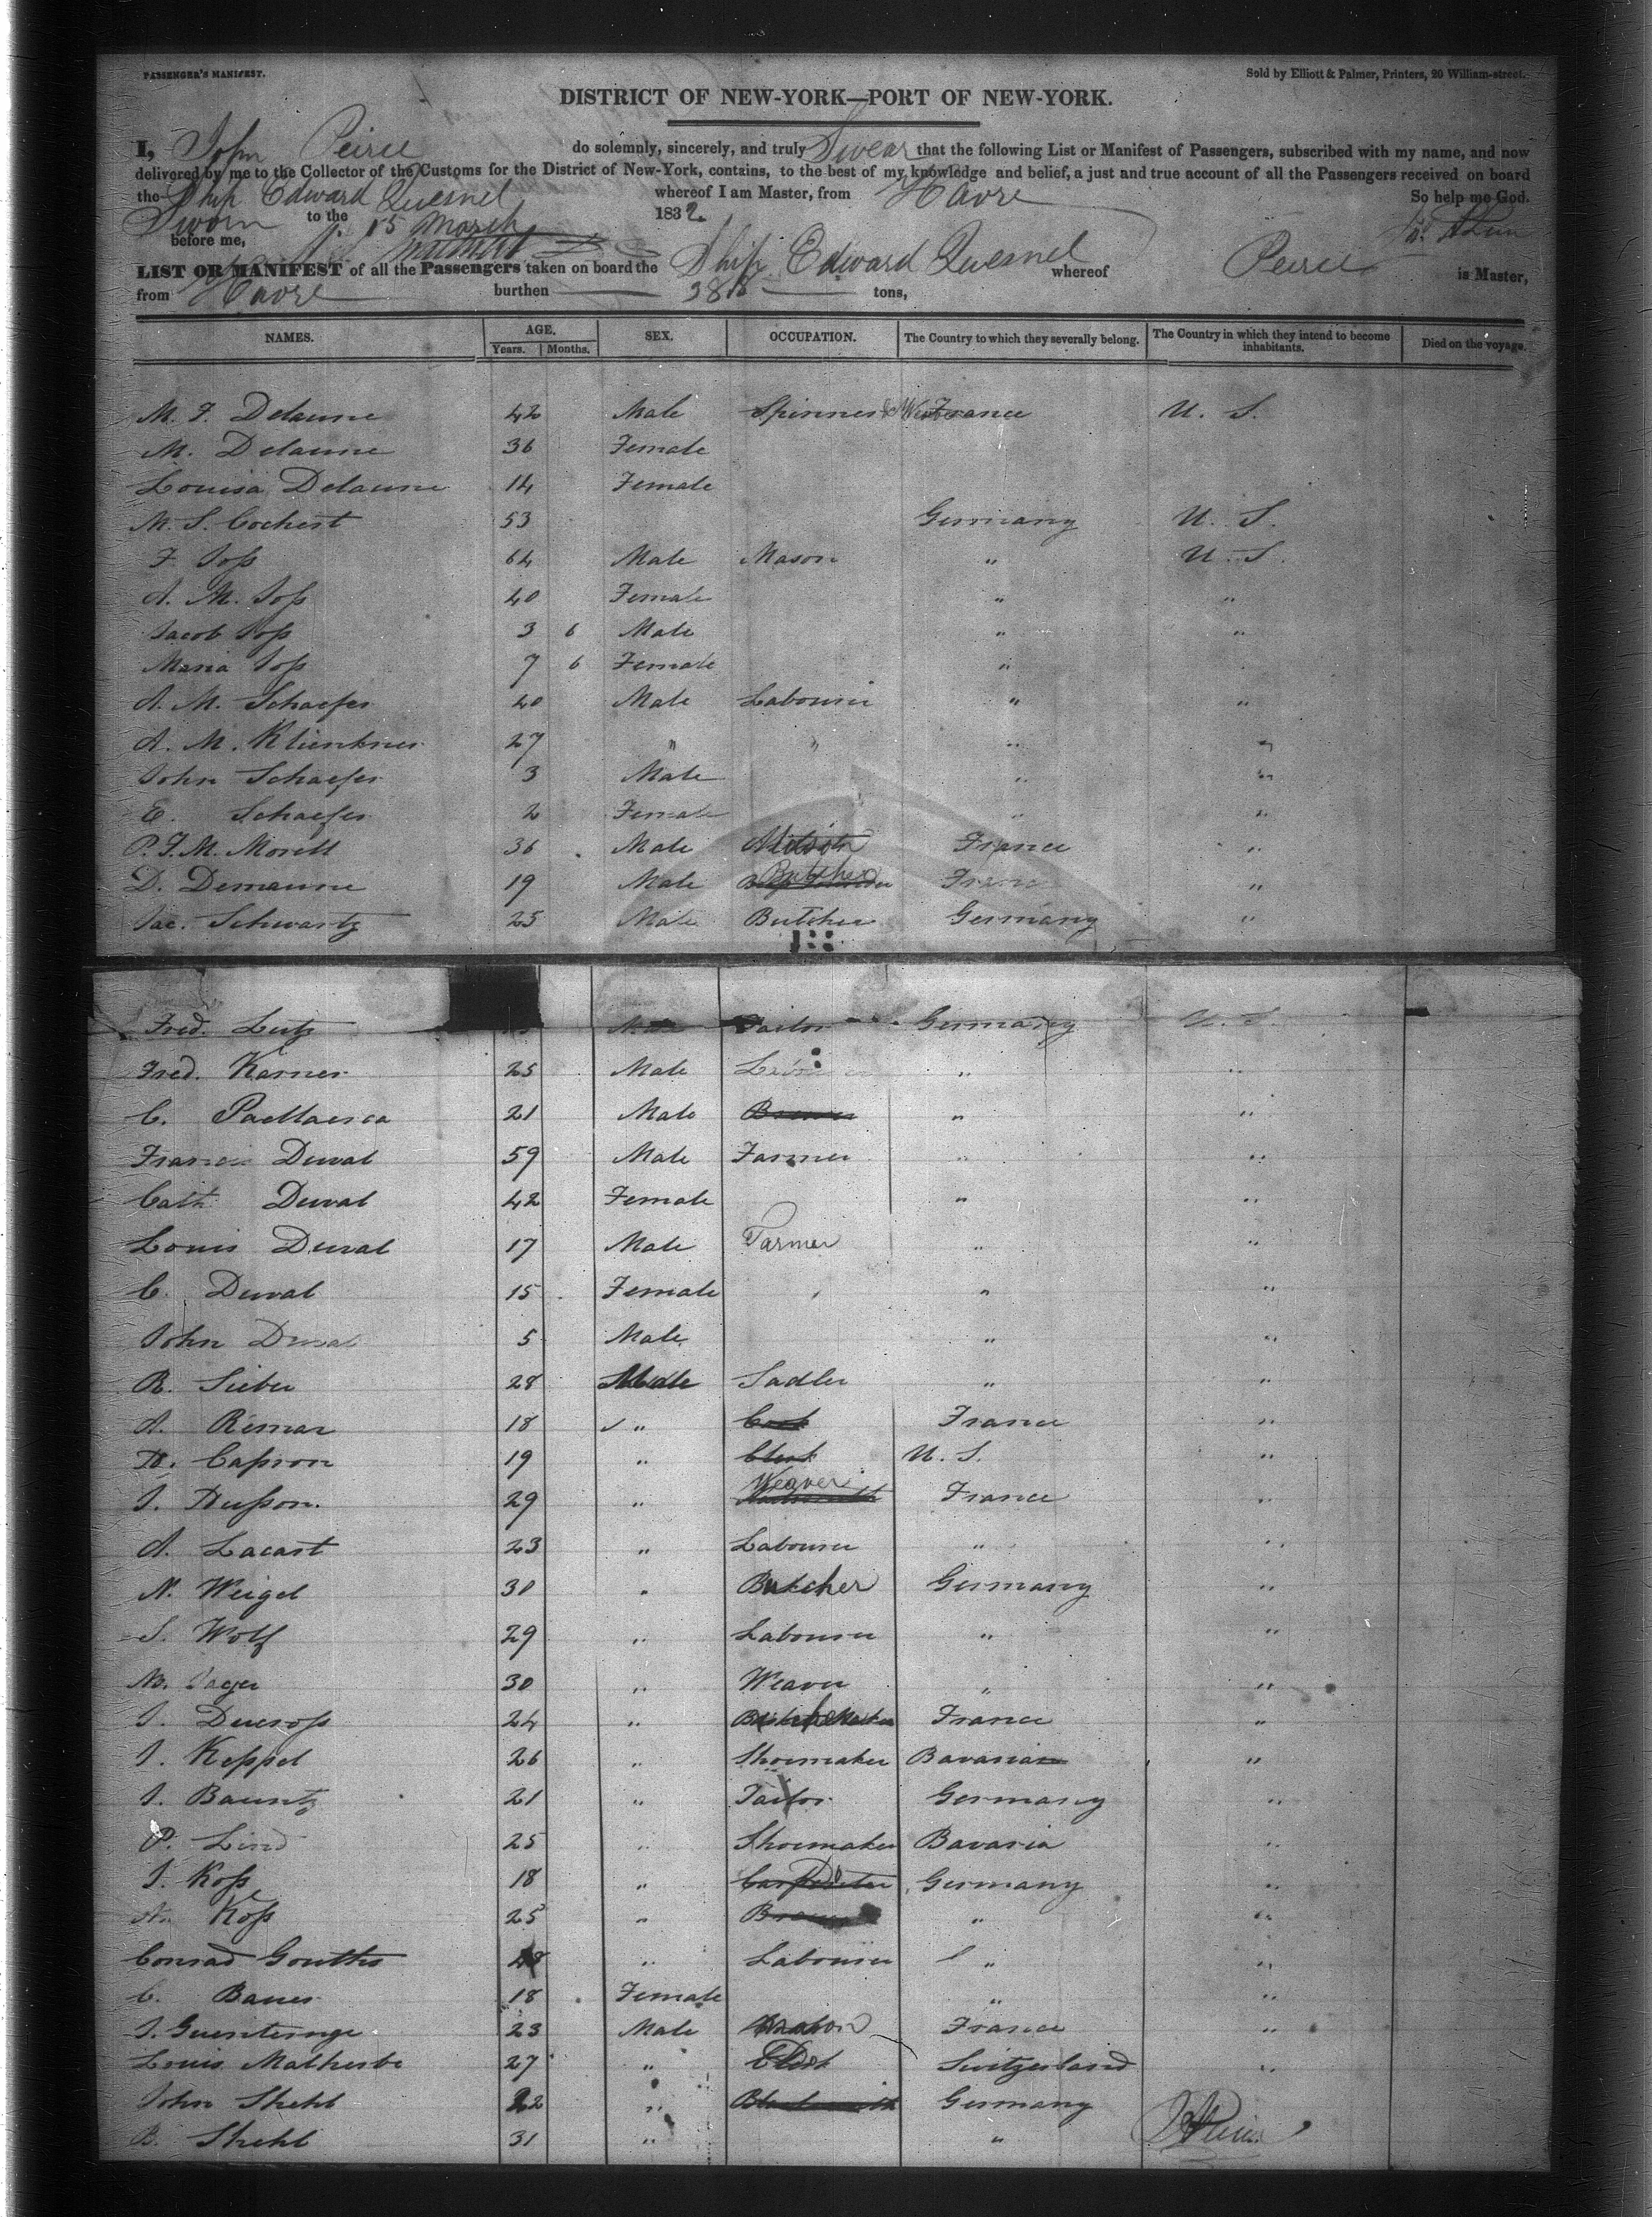 PASSENGER'S MANIFEST.
Sold by Elliott & Palmer, Printers, 20 William-street.
DISTRICT OF NEW-YORK—PORT OF NEW-YORK.
I, John Peirce do solemnly, sincerely, and truly Swear that the following List or Manifest of Passengers, subscribed with my name, and now
delivered by me to the Collector of the Customs for the District of New-York, contains, to the best of my knowledge and belief, a just and true account of all the Passengers received on board
the Ship Edward Quesnel whereof I am Master, from Havre So help me God.
Sworn to the 15 March 1832
before me,
LIST OR MANIFEST of all the Passengers taken on board the Ship Edward Quesnel whereof Peirce is Master,
from Havre burthen 388 tons,
NAMES. AGE. Years. Months. SEX. OCCUPATION. The Country to which they severally belong. The Country in which they intend to become inhabitants. Died on the voyage.
M. F. Delaune 42 Male Spinner & France U. S.
M. Delaune 36 Female
Louisa Delaune 14 Female
M. S. Cochert 53 Germany U. S.
F Joß 64 Male Mason " U. S.
A. M. Joß 40 Female " "
Jacob Joß 3 6 Male " "
Maria Joß 7 6 Female "
A. M. Schaefer 40 Male Labourer " "
A. M. 27 " " " "
John Schaefer 3 Male " "
E. Schaefer 2 Female " "
P. F. M. Morell 36 Male France "
D. Demaune 19 Male Butcher France "
Jac. Schwartz 25 Male Butcher Germany "
Fred. Lutz Male Tailor Germany U. S.
Fred. Karner 25 Male " "
C. 21 Male " "
Francis Duval 59 Male Farmer " "
Cath Duval 42 Female " "
Louis Duval 17 Male Farmer " "
C. Duval 15 Female " "
John Duval 5 Male " "
R. Sieber 28 Male Sadler " "
A. Remar 18 " France "
H. Capron 19 " Clerk U. S. "
J. Hußon. 29 " Weaver France "
A. Lacast 23 " Labourer " "
N. Weigel 30 " Butcher Germany "
S. Wolf 29 " Labourer " "
M. Jager 30 " Weaver " "
J. Ducroß 24 " France "
J. Keppel 26 " Shoemaker Bavaria "
J. Bauntz 21 " Tailor Germany "
P. Lind 25 " Shoemaker Bavaria "
J. Koß 18 " Carpenter Germany "
N. Koß 25 " " "
Conrad Gouthis " Labourer " "
C. Bauer 18 Female " "
J. Guenteringe 23 Male France "
Louis Malherbe 27 " Switzerland "
John Stehl 22 " Blacksmith Germany
B. Stehl 31 " "